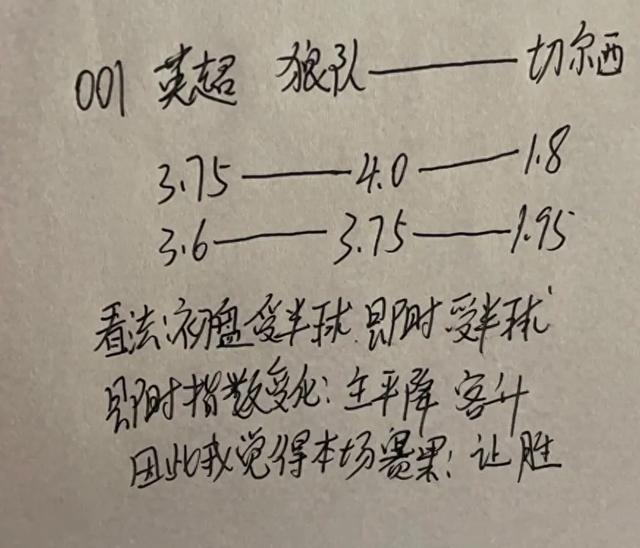 001 英超 狼队——切尔西
3.75——4.0——1.8
3.6——3.75——1.95
看法:初盘受半球 即时受半球
即时指数变化:主平降 客升
因此我觉得本场赛果:让胜